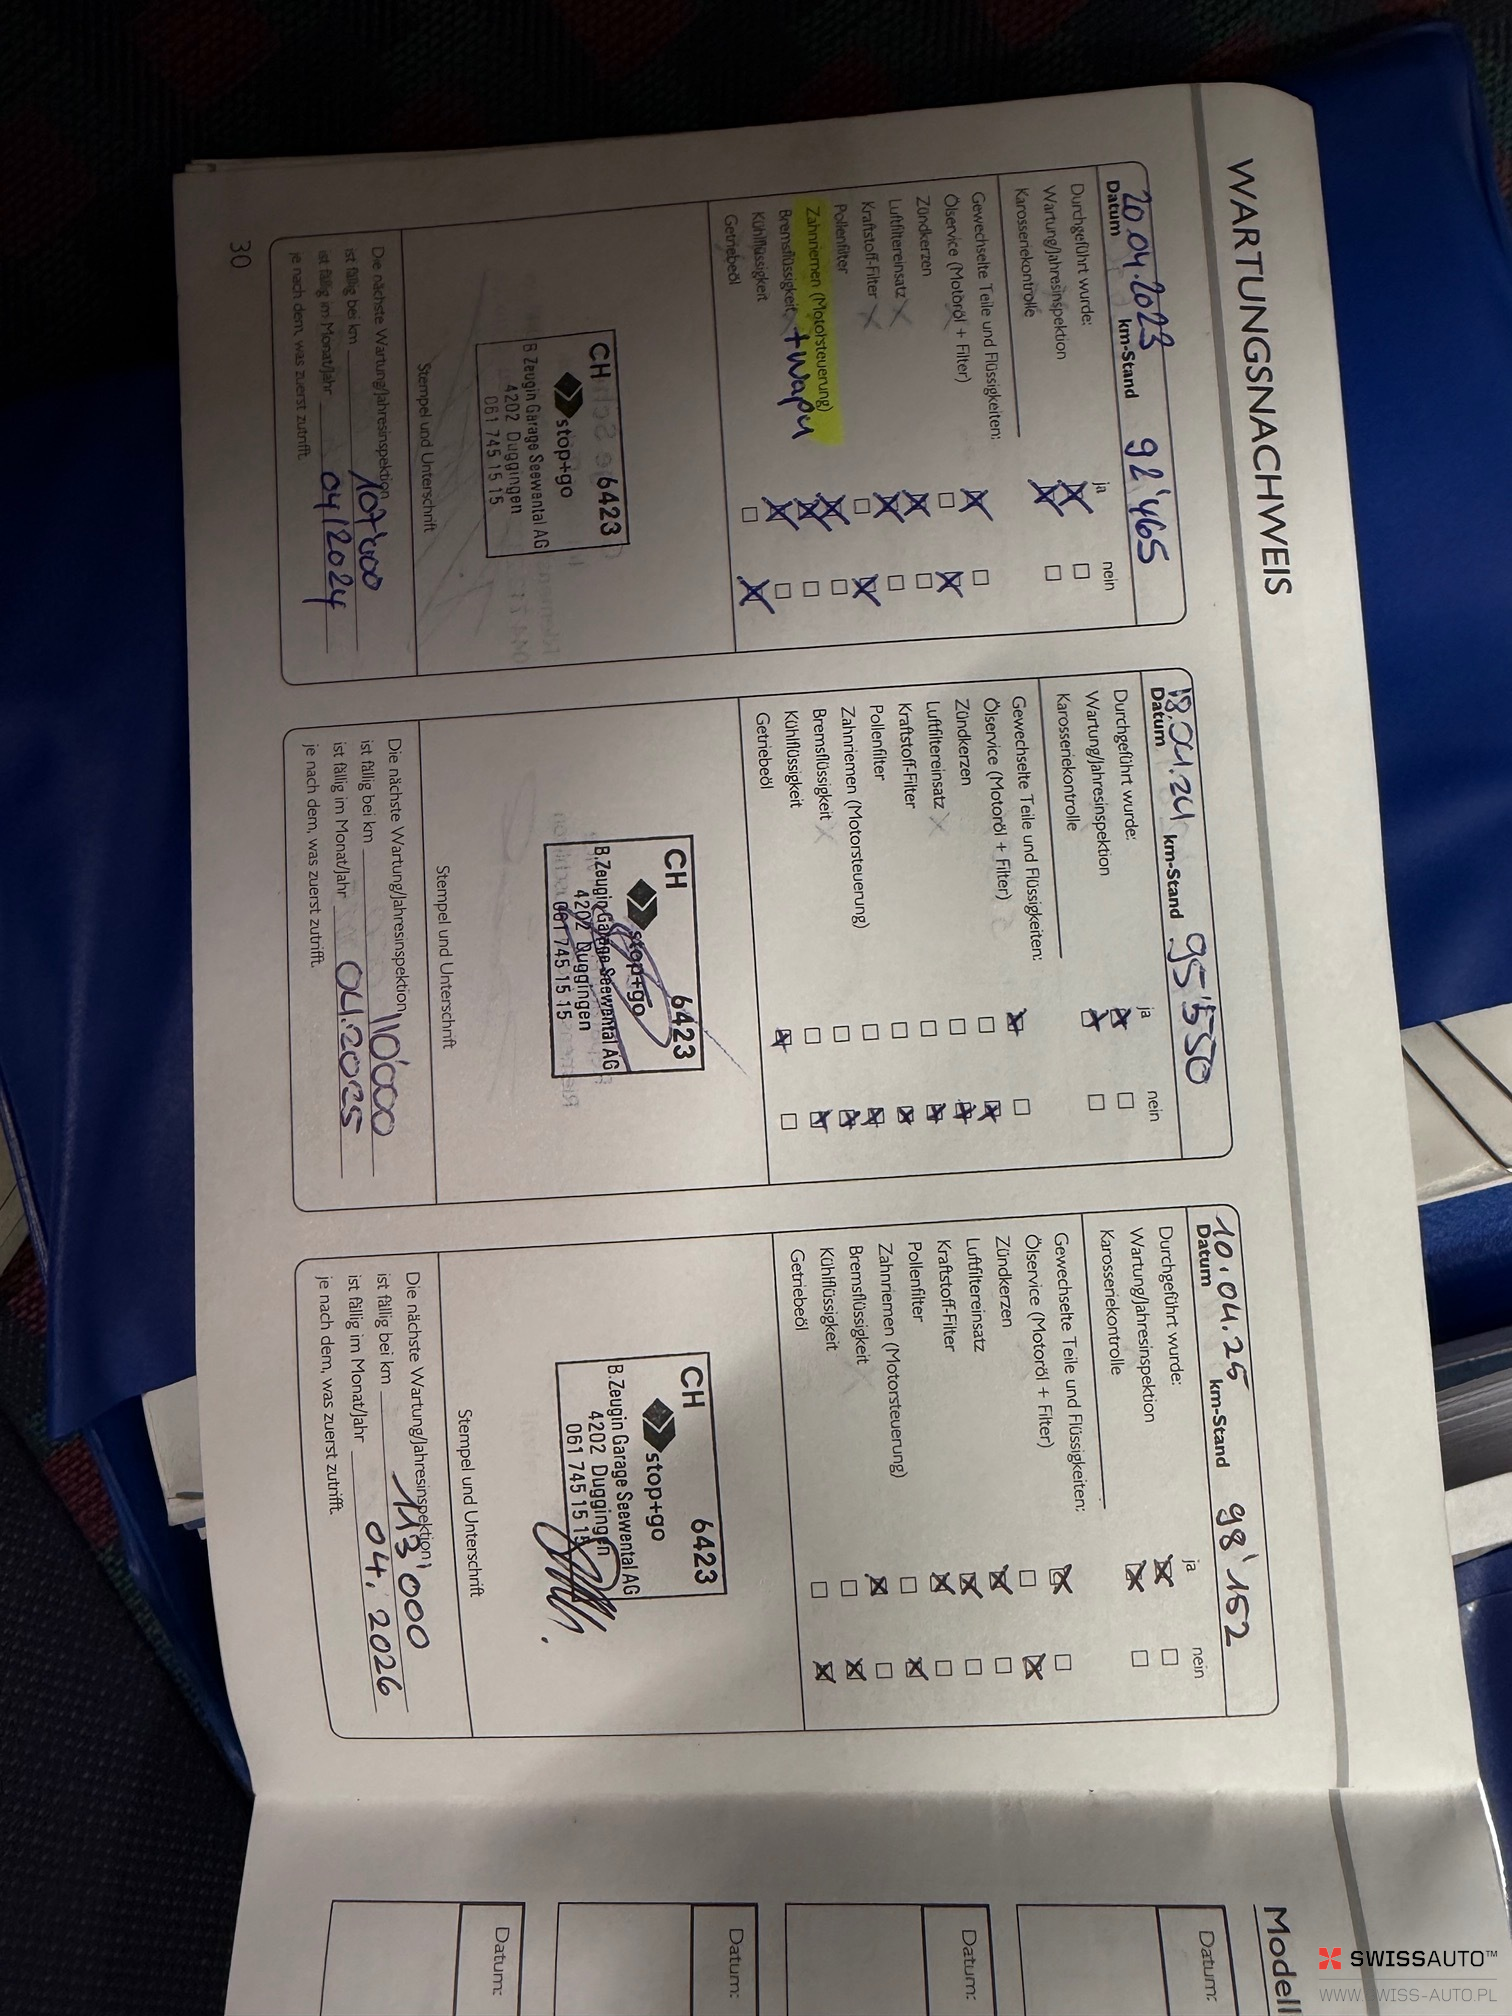 WARTUNGSNACHWEIS
20.04.2023 92'465
Datum km-Stand
Durchgeführt wurde: ja nein
Wartung/Jahresinspektion
Karosseriekontrolle
Gewechselte Teile und Flüssigkeiten:
Ölservice (Motoröl + Filter)
Zündkerzen
Luftfiltereinsatz
Kraftstoff-Filter
Pollenfilter
Zahnriemen (Motorsteuerung) + Wapu
Bremsflüssigkeit
Kühlflüssigkeit
Getriebeöl
CH 6423
stop+go
B.Zeugin Garage Seewental AG
4202 Duggingen
061 745 15 15
Stempel und Unterschrift
Die nächste Wartung/Jahresinspektion
ist fällig bei km 107'000
ist fällig im Monat/Jahr 04/2024
je nach dem, was zuerst zutrifft.
30
18.04.24 95'550
Datum km-Stand
Durchgeführt wurde: ja nein
Wartung/Jahresinspektion
Karosseriekontrolle
Gewechselte Teile und Flüssigkeiten:
Ölservice (Motoröl + Filter)
Zündkerzen
Luftfiltereinsatz
Kraftstoff-Filter
Pollenfilter
Zahnriemen (Motorsteuerung)
Bremsflüssigkeit
Kühlflüssigkeit
Getriebeöl
CH 6423
stop+go
B.Zeugin Garage Seewental AG
4202 Duggingen
061 745 15 15
Stempel und Unterschrift
Die nächste Wartung/Jahresinspektion
ist fällig bei km 110'000
ist fällig im Monat/Jahr 04.2025
je nach dem, was zuerst zutrifft.
10.04.25 98'152
Datum km-Stand
Durchgeführt wurde: ja nein
Wartung/Jahresinspektion
Karosseriekontrolle
Gewechselte Teile und Flüssigkeiten:
Ölservice (Motoröl + Filter)
Zündkerzen
Luftfiltereinsatz
Kraftstoff-Filter
Pollenfilter
Zahnriemen (Motorsteuerung)
Bremsflüssigkeit
Kühlflüssigkeit
Getriebeöl
CH 6423
stop+go
B.Zeugin Garage Seewental AG
4202 Duggingen
061 745 15 15
Stempel und Unterschrift
Die nächste Wartung/Jahresinspektion
ist fällig bei km 113'000
ist fällig im Monat/Jahr 04.2026
je nach dem, was zuerst zutrifft.
Modell
Datum:
Datum:
Datum:
Datum:
SWISSAUTO™
WWW.SWISS-AUTO.PL